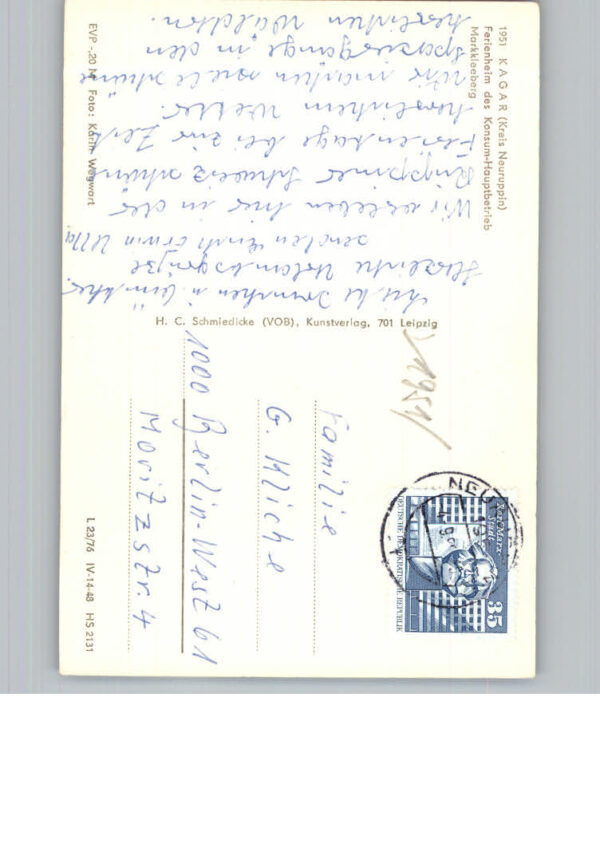 1951 KAGAR (Kreis Neuruppin)
Ferienheim des Konsum-Hauptbetrieb
Markkleeberg
Herzliche Urlaubsgrüße
senden Euch Erwin Ulla
Wir verleben hier in der
Ruppiner Schweiz schöne
Ferientage bei zur Zeit
herrlichem Wetter.
Wir machen viele schöne
Spaziergänge in den
herrlichen Wäldern.
EVP -,20 M Foto: Karin Wegwart
H. C. Schmiedicke (VOB), Kunstverlag, 701 Leipzig
1951
Karl-Marx-Stadt
35
DEUTSCHE DEMOKRATISCHE REPUBLIK
Familie
G. Kliche
1000 Berlin-West 61
Moritzstr. 4
L 23/76 IV-14-48 HS 2131